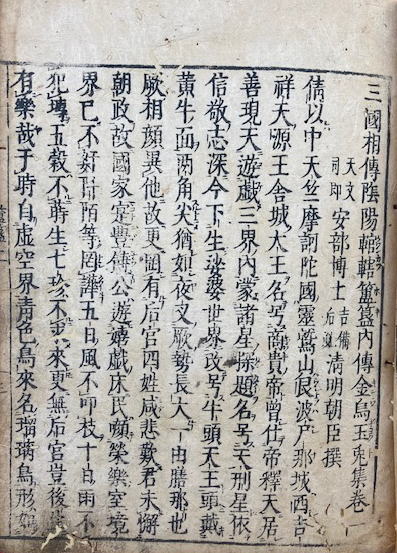 三國相傳陰陽輨轄簠簋內傳金烏玉兎集巻一
天文司郎 安部博士 吉備后胤 清明朝臣撰
倩以中天竺摩訶陀國靈鷲山艮波尸那城西吉
祥天源王舍城大王名号商貴帝曽仕帝釋天居
善現天遊戲三界內蒙諸星探題名号天刑星依
信敬志深今下生娑婆世界改号牛頭天王頭戴
黄牛面両角尖猶如夜叉厥勢長大一由膳那也
厥相顔異他故更罔有后官四姓咸悲歎君未懈
朝政故國家寔豐傳公遊嬉戲床民頻榮樂室境
界已不陌等罔譁五日風不叩枝十日雨不
犯壤五穀不蒔生七珍不求來更無后官豈後
有樂哉于時自虛空界青色鳥來名瑠璃鳥形如